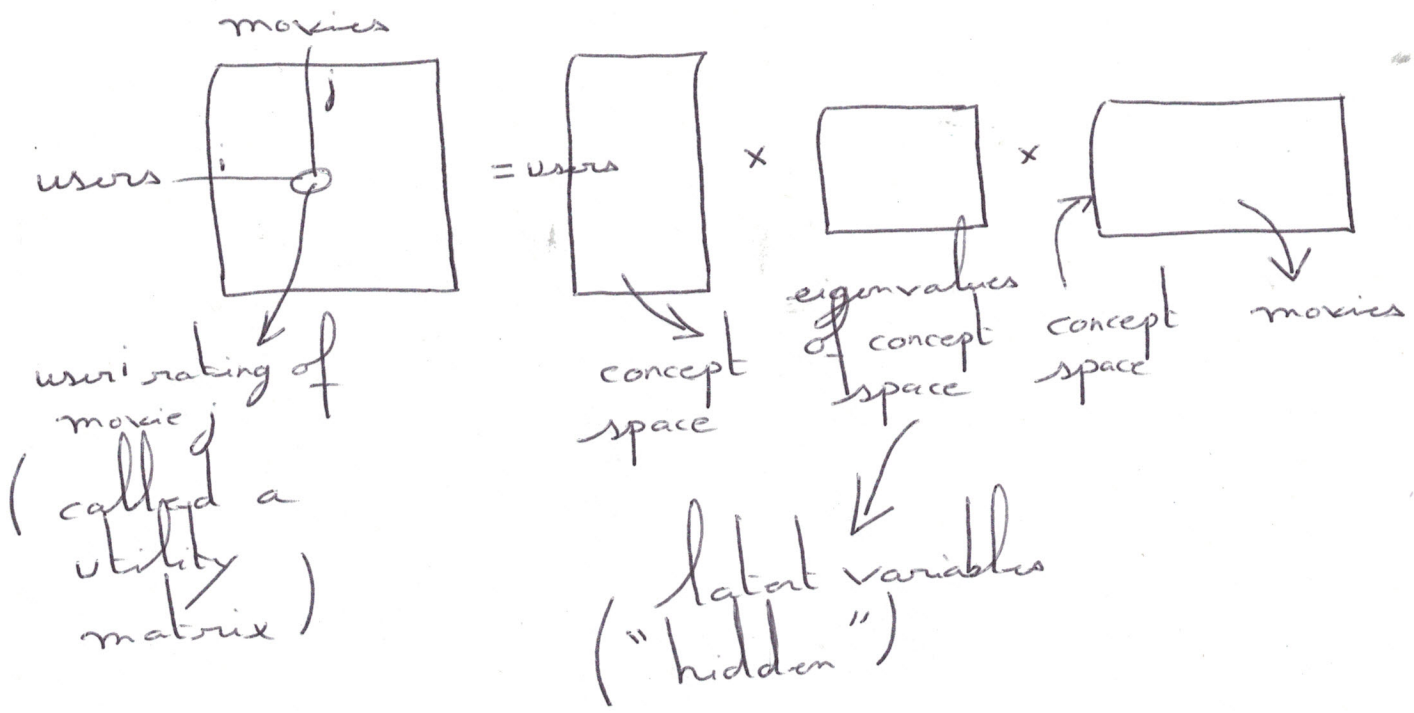 movies
j
users i
= users
×
×
user i rating of
movie j
( called a
utility
matrix )
concept
space
eigenvalues
of concept
space
concept
space
movies
latent variables
( "hidden" )